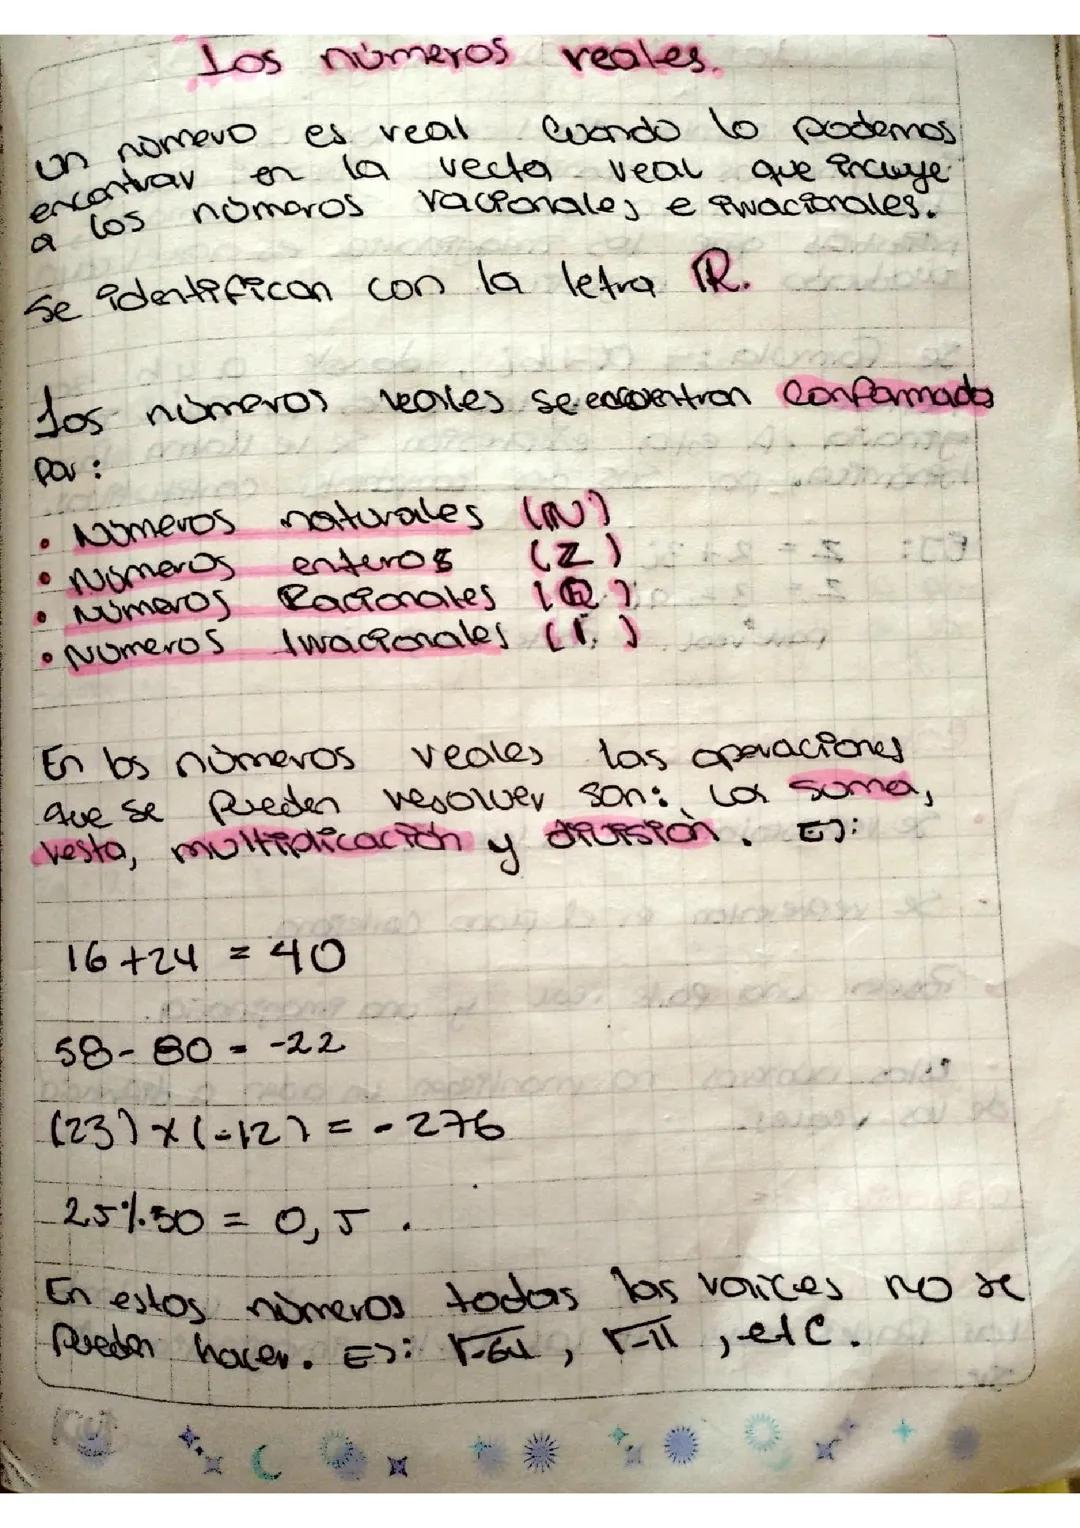 Los números reales.
un número es real cuando lo podemos
encontrar en la recta real que incluye
a los números racionales e irracionales.
Se identifican con la letra ℝ.
Los números reales se encuentran conformados
por:
• Números naturales (ℕ)
• Números enteros (Z)
• Números Racionales (ℚ)
• Números Irracionales (I)
En los números reales las operaciones
que se pueden resolver son: La suma,
resta, multiplicación y división. Ej:
16+24 = 40
58-80 = -22
(23)x(-12) = -276
25%50 = 0,5.
En estos números todas las raíces no se
pueden hacer. Ej: √-64, √-11, etc.